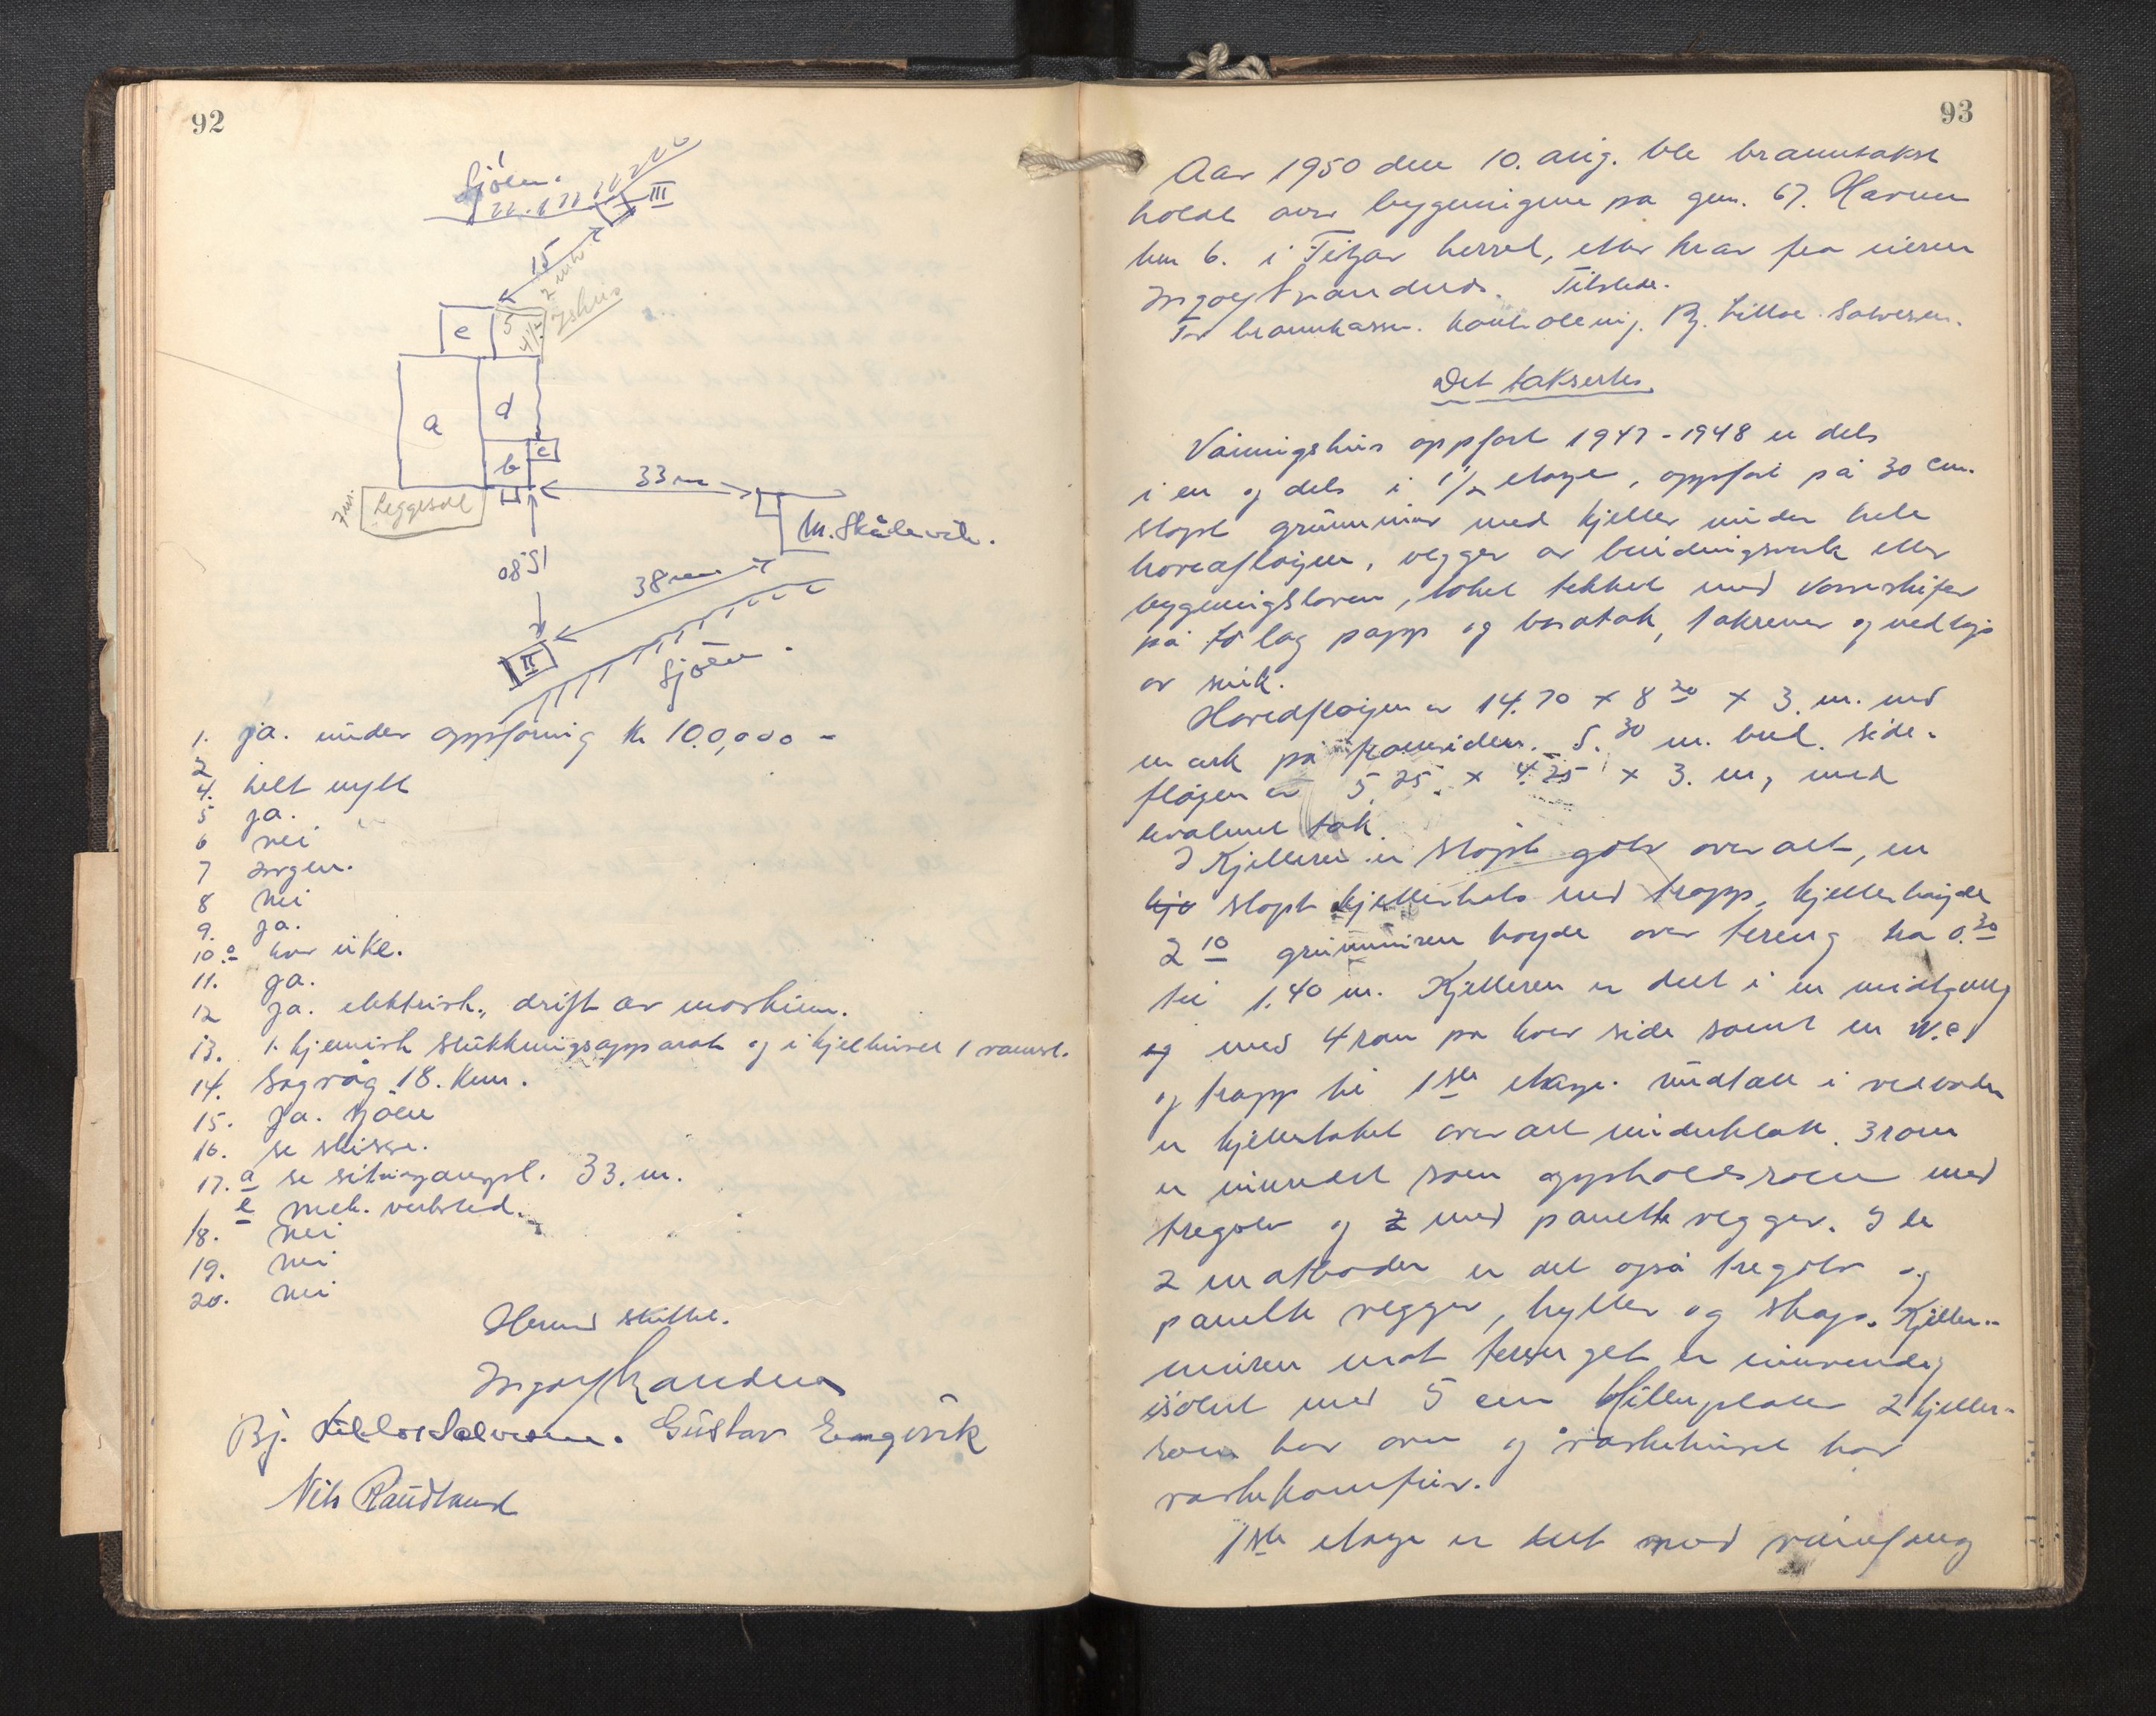 92
Sjöen.
III
15
2 mtr.
Ishus
e
5
4½
a
d
c
b
7 m.
Leggesal
33 m
M. Skålevik.
15.80
38 m
II
Sjöen.
1. ja. under oppföring kr 100,000 -
2
4. helt nytt
5 ja.
6 nei
7 Ingen.
8 nei
9. ja.
10. a har ikke.
11. ja.
12 ja. elektrisk, drift av maskiner.
13. 1 kjemisk slukkningsapparat og i kjelhuset 1
14. Sagvåg 18. km.
15. ja. sjöen
16. se skisse.
17. a se situasjonspl. 33. m.
e mek. verksted.
18. nei
19. nei
20. nei
Hermed sluttet.
Bj. Lillor Salvesen. Gustav Engevik
Nils Raudland
93
Aar 1950 den 10. aug. ble branntakst
holdt over bygningene på gnr. 67. Havnen
bnr 6. i Fitjar herred, etter krav fra eieren
Tilstede.
For brannkassen. Kontrolleing. Bj. Lillor Salvesen.
Det taksertes.
Våningshus oppfört 1947-1948 er dels
i en og dels i 1½ etage, oppfört på 30 cm.
stöpt grunnmur med kjeller under hele
hovedflöyen, vegger av bindingsverk etter
bygningsloven, taket tekket med Vosseskifer
på to lag papp og bordtak, takrenner og nedlöp
av sink.
Hovedflöyen er 14.70 x 8 20 x 3. m. med
en ark på framsiden. 5.30 m. bred. Side-
flöyen er 5.25. x 4.25 x 3. m, med
valmet tak.
I Kjelleren er stöpt golv over alt, en
kje stöpt kjellerhals med trapp, kjellerhöyde
2 10 grunnmuren höyde over tereng fra 0.30
til 1.40 m. Kjelleren er delt i en midtgang
og med 4 rom på hver side samt en W.C.
og trapp til 1ste etage. Undtatt i vedboden
er kjellertaket over alt underkledt. 3 rom
er innredet som oppholdsrom med
tregolv og 2 med panelte vegger. I de
2 matboder er det også tregolv og
panelte vegger, hyller og skap. Kjeller-
muren mot terrenget er innvendig
isolert med 5 cm plater 2 kjeller-
rom har ovn og vaskehuset har
vaskekomfur.
1ste etage er delt med vindfang